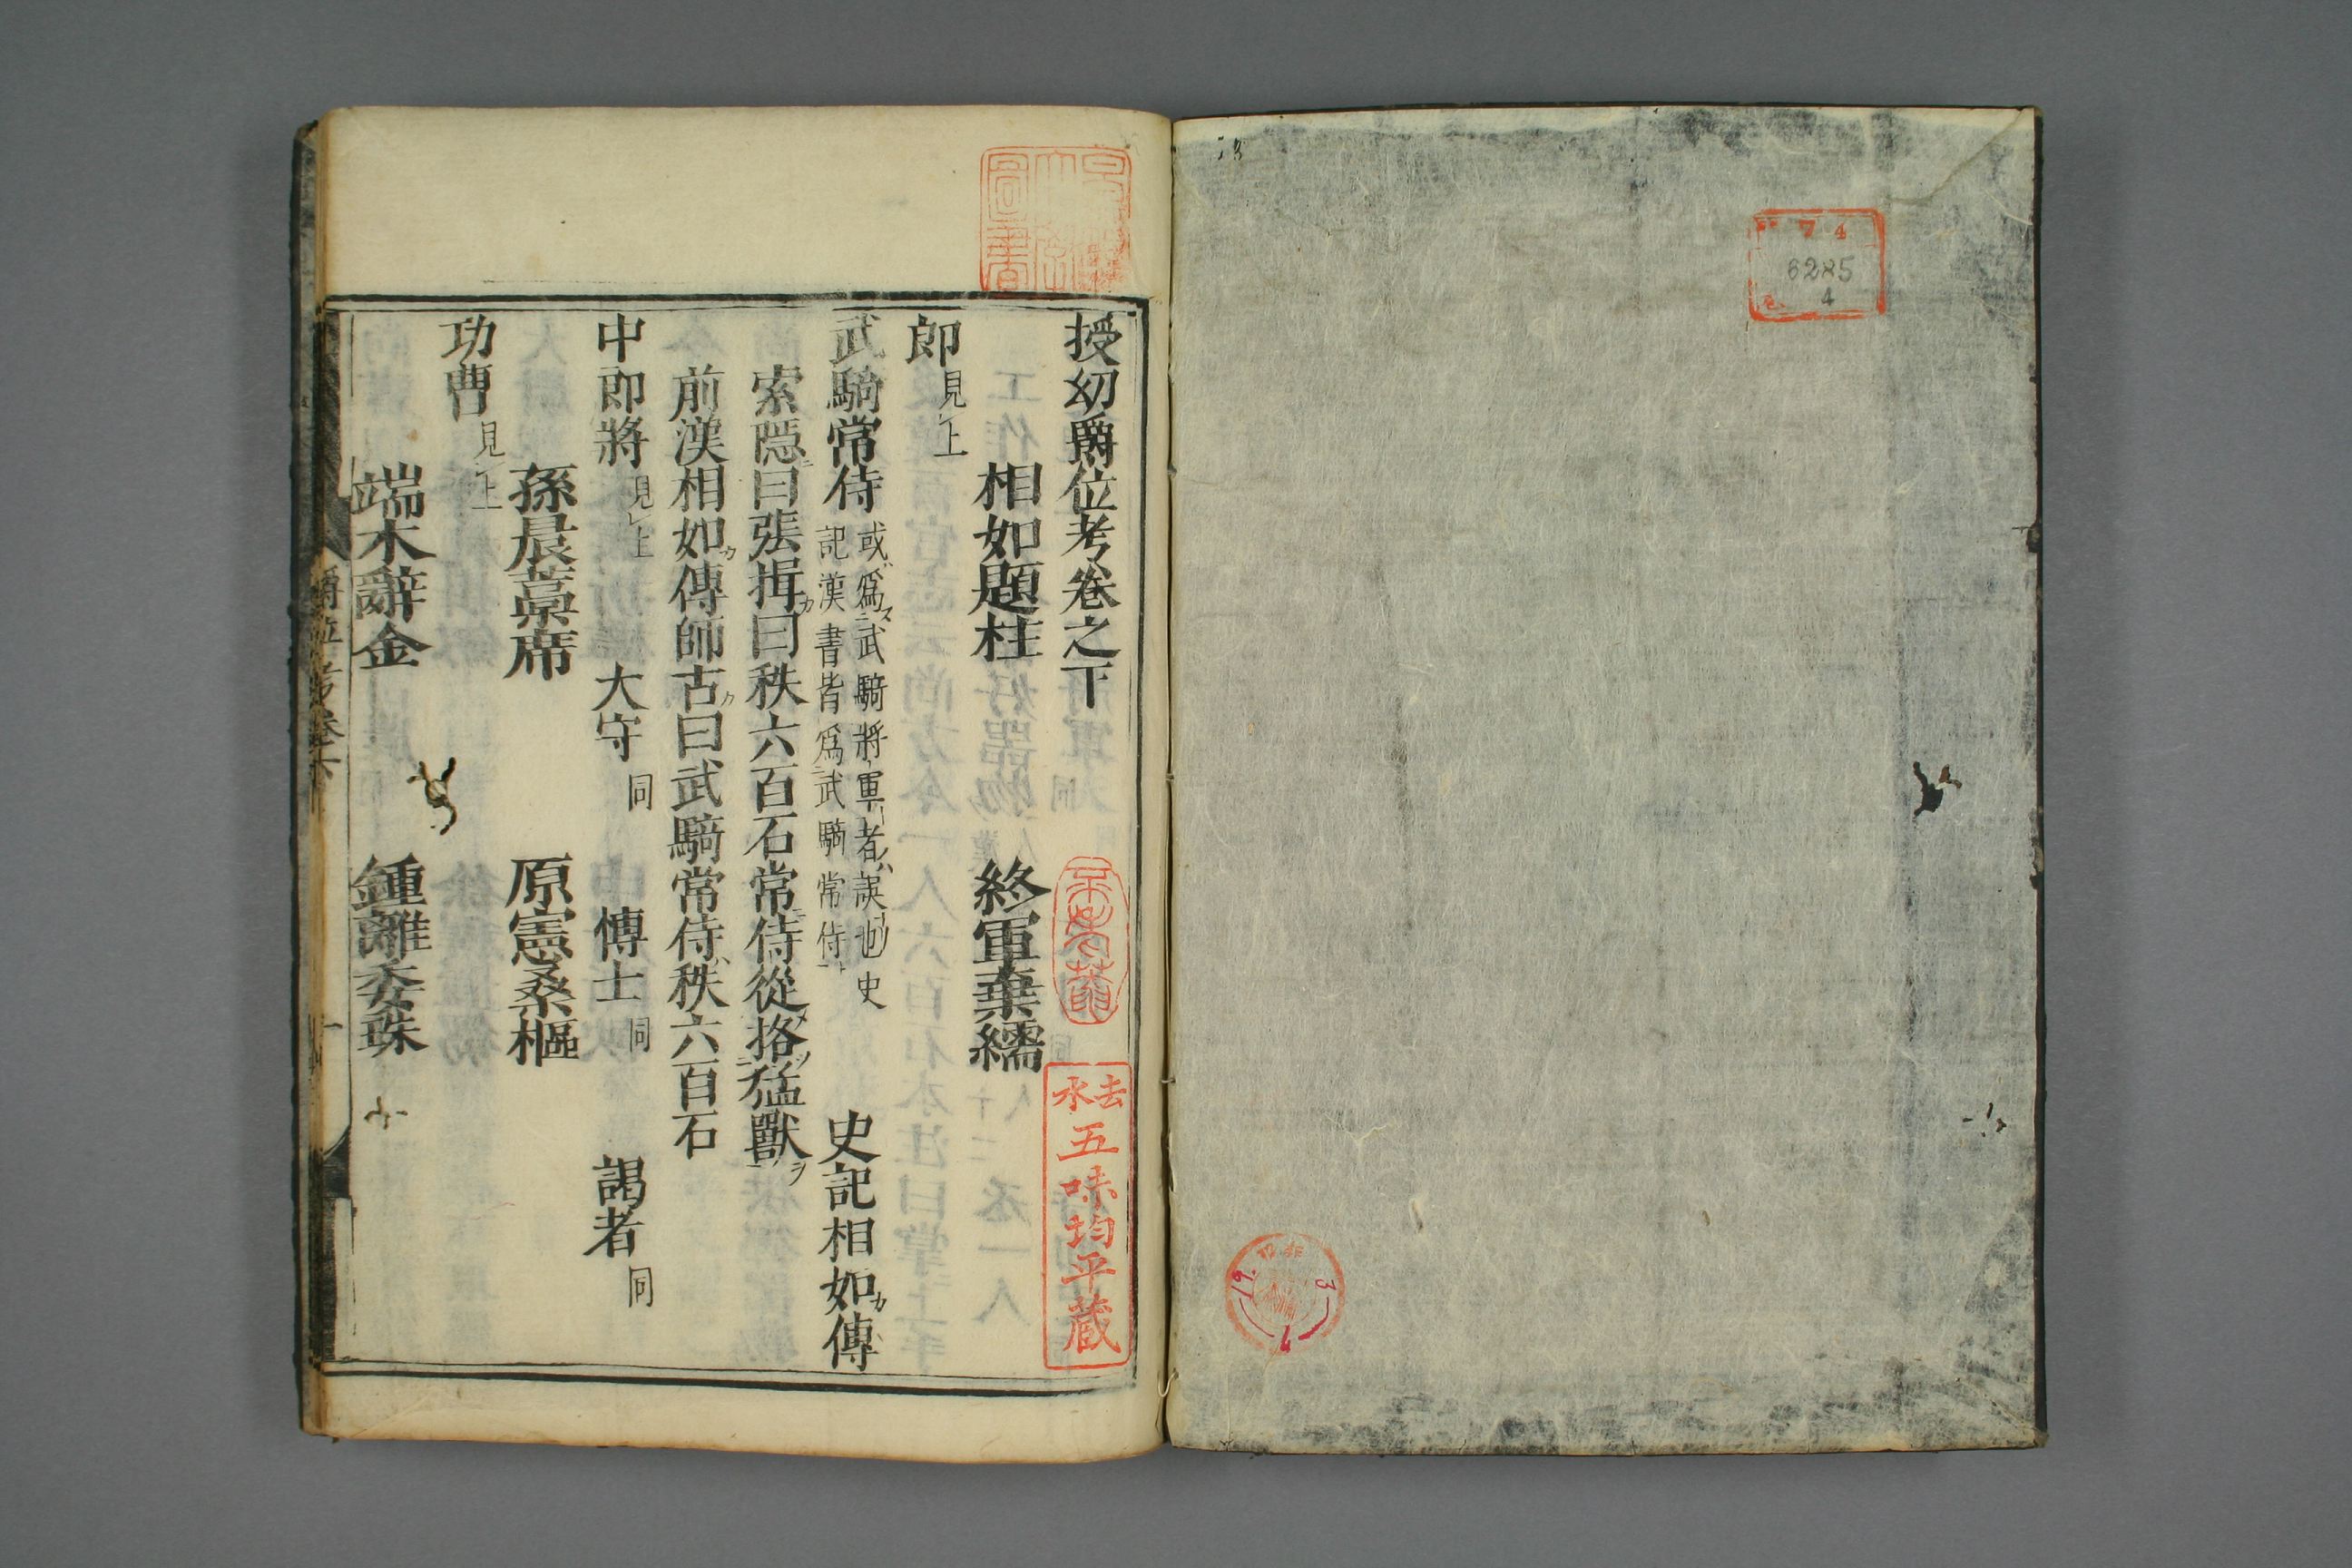 7 4
6285
4
授幼爵位考卷之下
相如題柱 終軍棄繻
郎見上
武騎常侍或爲武騎將軍者誤也史記漢書皆爲武騎常侍 史記相如傳
索隠曰張揖曰秩六百石常侍從挌猛獸
前漢相如傳師古曰武騎常侍秩六百石
中郎將見上 大守同 博士同 謁者同
孫晨藁席 原憲桑樞
功曹見上
端木辭金 鍾離委珠
爵位考卷下 一
圖書
去水五味均平蔵